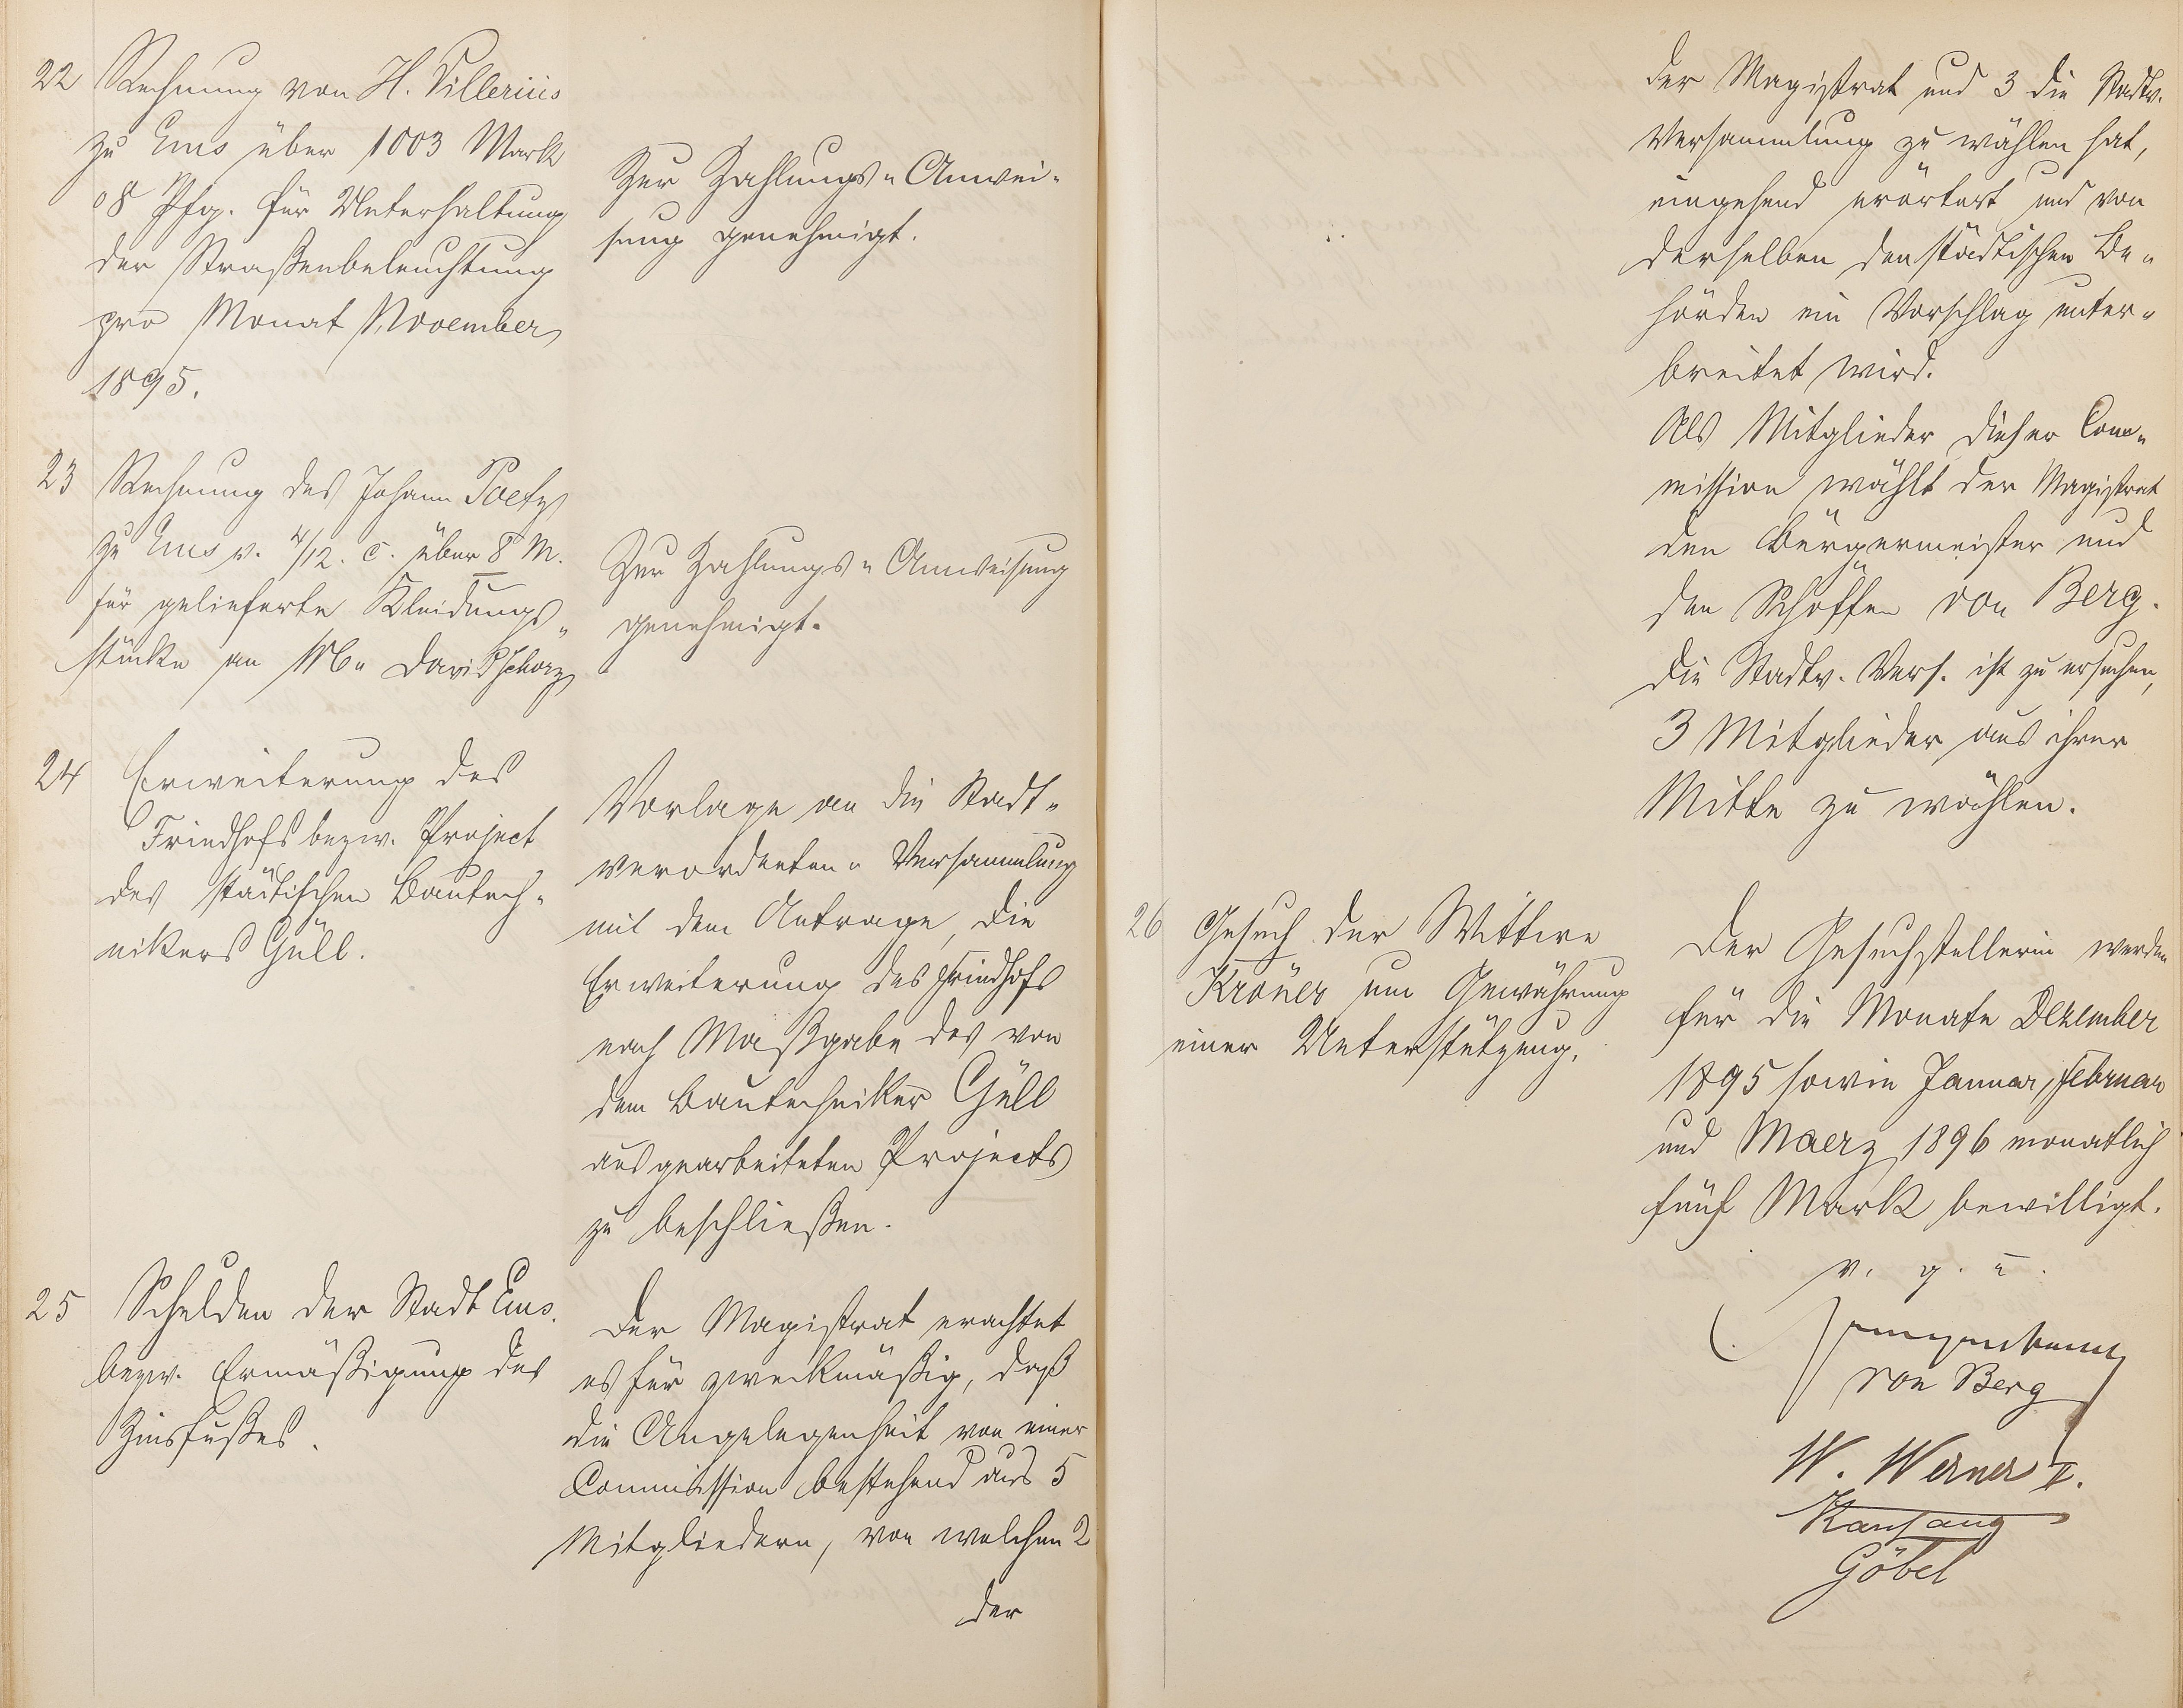 22 Rechnung von H. Villerius
zu Ems über 1003 Mark
08 Pfg. für Unterhaltung
der Straßenbeleuchtung
pro Monat November
1895.
Zur Zahlungs-Anwei-
sung genehmigt.
23 Rechnung des Johann Poetz
zu Ems v. 4/12. c. über 8 M.
für gelieferte Kleidungs-
stücke an David
Zur Zahlungs-Anweisung
genehmigt.
24 Erweiterung des
Friedhofs bezw. Project
des städtischen Bautech-
nikers Güll.
Vorlage an die Stadt-
verordneten-Versammlung
mit dem Antrage, die
Erweiterung des Friedhofs
nach Maßgabe des von
dem Bautechniker Güll
ausgearbeiteten Projects
zu beschließen.
25 Schulden der Stadt Ems.
bezw. Ermäßigung des
Zinsfußes.
Der Magistrat erachtet
es für zweckmäßig, daß
die Angelegenheit von einer
Commission bestehend aus 5
Mitgliedern, von welchen 2
der
der Magistrat und 3 die Stadtv.
Versammlung zu wählen hat,
eingehend erörtert und von
derselben den städtischen Be-
hörden ein Vorschlag unter-
breitet wird.
Als Mitglieder dieser Com-
mission wählt der Magistrat
den Bürgermeister und
den Schöffen von Berg.
Die Stadtv. Vers. ist zu ersuchen,
3 Mitglieder aus ihrer
Mitte zu wählen.
26 Gesuch der Wittwe
Kröner um Gewährung
einer Unterstützung.
Der Gesuchstellerin werden
für die Monate Dezember
1895 sowie Januar, Februar
und Maerz 1896 monatlich
fünf Mark bewilligt.
v. g. u.
von Berg
W. Werner II.
Göbel